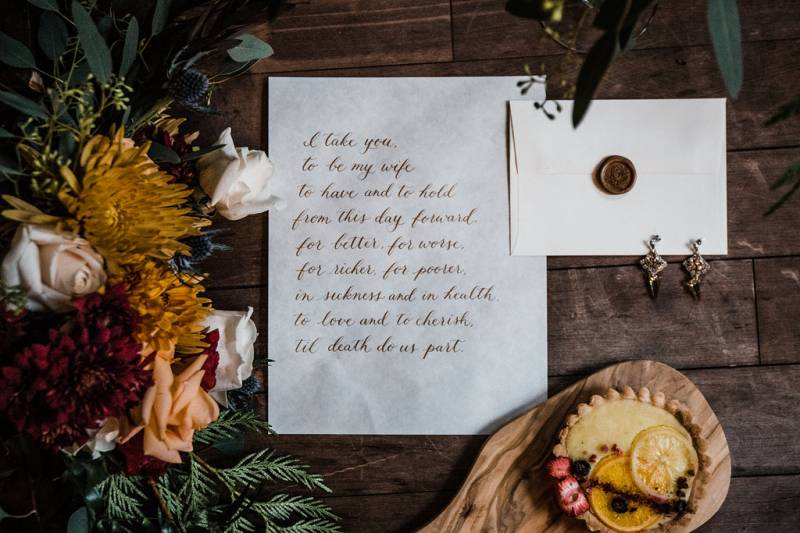 I take you,
to be my wife
to have and to hold
from this day forward.
for better, for worse,
for richer, for poorer,
in sickness and in health.
to love and to cherish,
til death do us part.